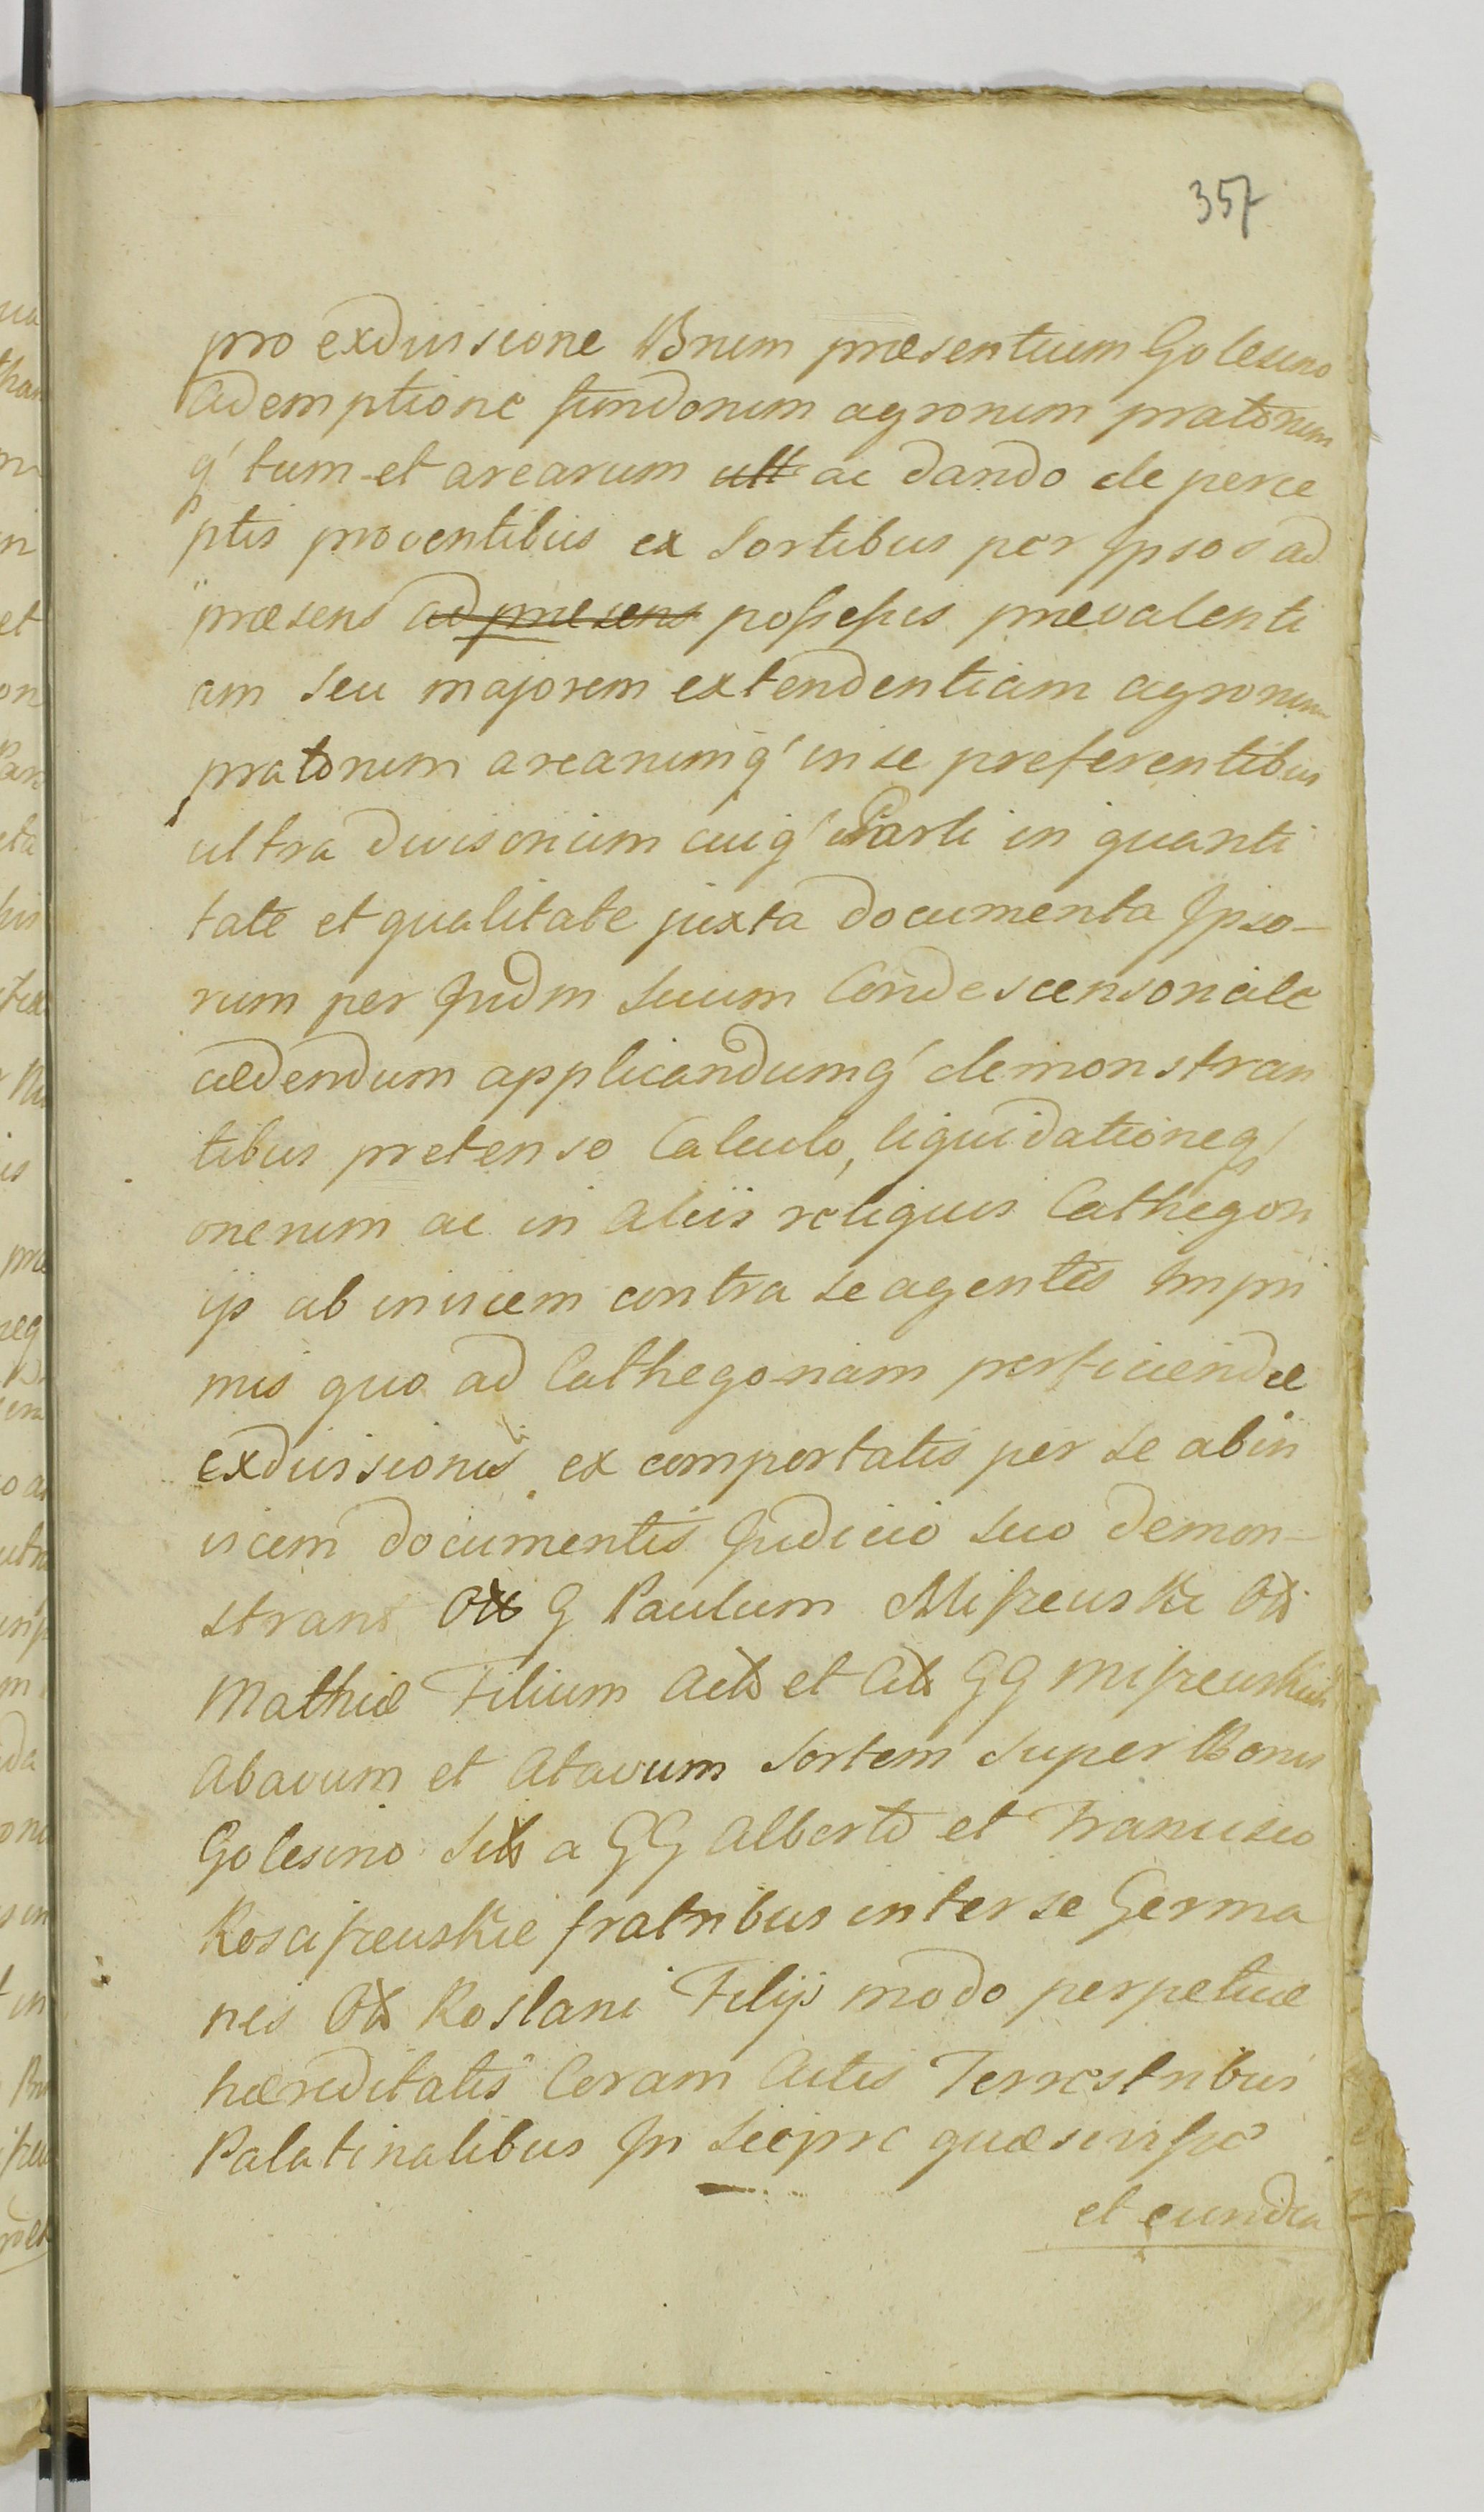 357
pro exdivisione Bnum præsentium Golesino
ademptione fundorum agrorum pratorum
q' tum et arearum ult ac dando de perce
ptis proventibus ex Sortibus per Ipsos ad
præsens ad præsens possessis prævalenti
am seu majorem extendentiam agrorum
pratorum arearumq' in se preferentibus
ultra divisorium cuiq' Parti in quanti
tate et qualitate juxta documenta Ipso-
rum per Judm suum Condescensoriale
ædendum applicandumq' demonstran
tibus pretenso Calculo, liquidationeq'
onerum ac in aliis reliquis Cathegori
ijs ab invicem contra se agentes Impri
mis quo ad Cathegoriam perficiendæ
exdivisionis ex comportatis per se abin
vicem documentis Judicio suo demon-
strant G Paulum Miszewski
Mathiæ Filium et GG Miszewskich
Abavum et Atavum Sortem super Bonis
Golesino a GG Alberto et Francisco
Rosciszewskie fratribus inter se Germa
nis Roslani Filijs modo perpetuæ
hæreditatis Coram Actis Terrestribus
Palatinalibus In Sieprc quæsivisse
et eunda